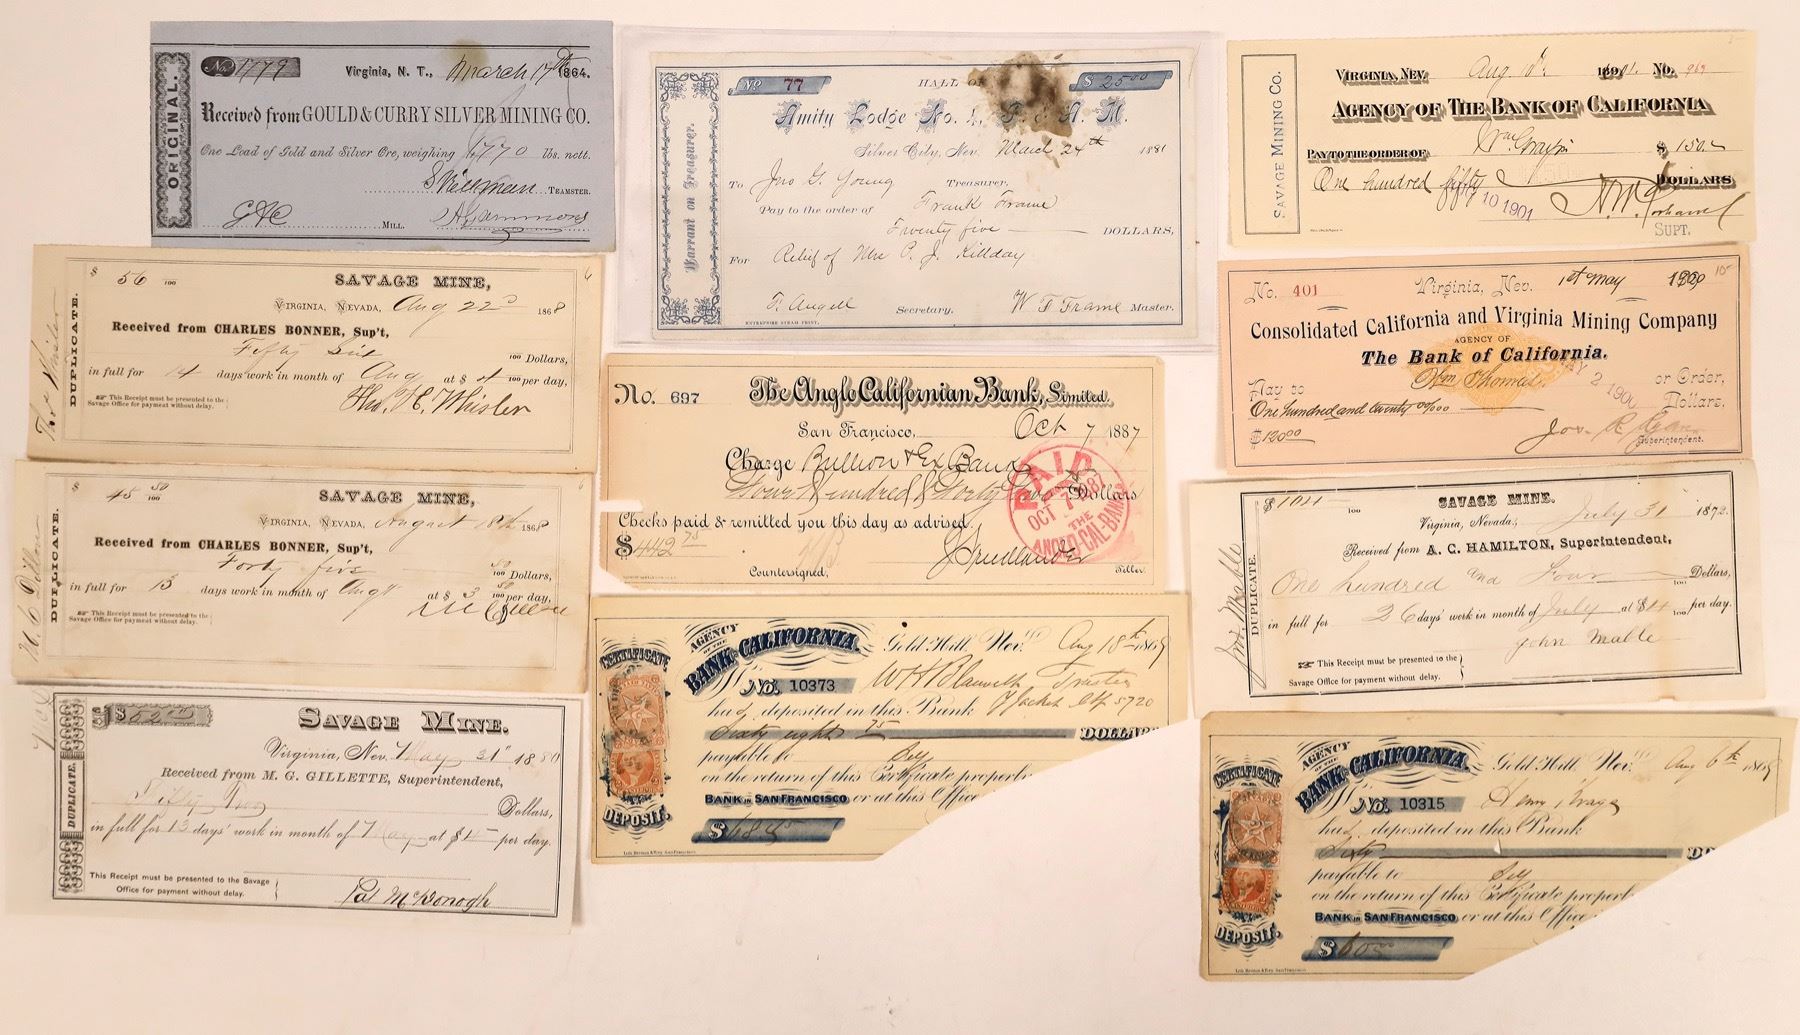 ORIGINAL.
No. 1779
Virginia, N. T., March 17th 1864.
Received from GOULD & CURRY SILVER MINING CO.
One Load of Gold and Silver Ore, weighing lbs. nett.
TEAMSTER.
G & C MILL.
$ 56 100
SAVAGE MINE,
VIRGINIA, NEVADA, Aug 22d 1868
DUPLICATE.
Received from CHARLES BONNER, Sup't,
Fifty Six 100 Dollars,
in full for 14 days work in month of Aug at $ 4 100 per day,
☞ This Receipt must be presented to the
Savage Office for payment without delay.
Tho. H. Whisler
$ 45 50 100
SAVAGE MINE,
VIRGINIA, NEVADA, August 18th 1868
DUPLICATE.
Received from CHARLES BONNER, Sup't,
Forty five 50 100 Dollars,
in full for 13 days work in month of Augt at $ 3 50 100 per day,
☞ This Receipt must be presented to the
Savage Office for payment without delay.
$ 52
SAVAGE MINE.
Virginia, Nev. May 31st 1880
DUPLICATE.
Received from M. G. GILLETTE, Superintendent,
Fifty Two Dollars,
in full for 13 days' work in month of May at $4 per day.
This Receipt must be presented to the Savage
Office for payment without delay.
Pat McDonogh
No 77
HALL OF
$ 25 00
Amity Lodge No. 4, F. & A. M.
Silver City, Nev. March 24th 1881
Warrant on Treasurer.
To Jno G. Young Treasurer,
Pay to the order of Frank Frame
Twenty five DOLLARS,
For Relief of Mrs C. J. Killday
F. Angell Secretary. W F Frame Master.
ENTERPRISE STEAM PRINT.
No. 697 The Anglo Californian Bank, Limited.
San Francisco, Oct 7 1887
Charge Bullion & Ex Bank
Four Hundred & Forty Two Dollars
Checks paid & remitted you this day as advised.
$442 75
Countersigned, Teller.
PAID
OCT 7 1887
THE
ANGLO-CAL-BANK
CERTIFICATE
DEPOSIT.
AGENCY
OF THE
BANK OF CALIFORNIA.
Gold Hill, Nev. Aug 18th 1869
No. 10373
W H Blauvelt Trustee
has deposited in this Bank Y Jacket Ctf 5720
Sixty eight 75 DOLLARS
payable to Self
on the return of this Certificate properly
BANK IN SAN FRANCISCO or at this Office
$ 68 75
SAVAGE MINING CO.
VIRGINIA, NEV. Aug 10. 1901. No. 969
AGENCY OF THE BANK OF CALIFORNIA
PAY TO THE ORDER OF $ 150.
One hundred fifty DOLLARS
10 1901
SUPT.
No. 401 Virginia, Nev. 1st May 1900
Consolidated California and Virginia Mining Company
AGENCY OF
The Bank of California.
Pay to Wm Thomas or Order,
One hundred and twenty 00/100 Dollars.
MAY 2 1900
$ 120 00
Jos. R. Ryan
Superintendent.
$ 104 100
SAVAGE MINE.
Virginia, Nevada, July 31 1873.
DUPLICATE.
Jno. Mable
Received from A. C. HAMILTON, Superintendent,
One hundred and Four 100 Dollars,
in full for 26 days' work in month of July at $4 100 per day.
John Mable
☞ This Receipt must be presented to the
Savage Office for payment without delay.
CERTIFICATE
DEPOSIT.
AGENCY
OF THE
BANK OF CALIFORNIA.
Gold Hill, Nev. Aug 6th 1869
No. 10315
Henry
has deposited in this Bank
Sixty DO
payable to Self
on the return of this Certificate properl
BANK IN SAN FRANCISCO or at this Office
$ 60 00